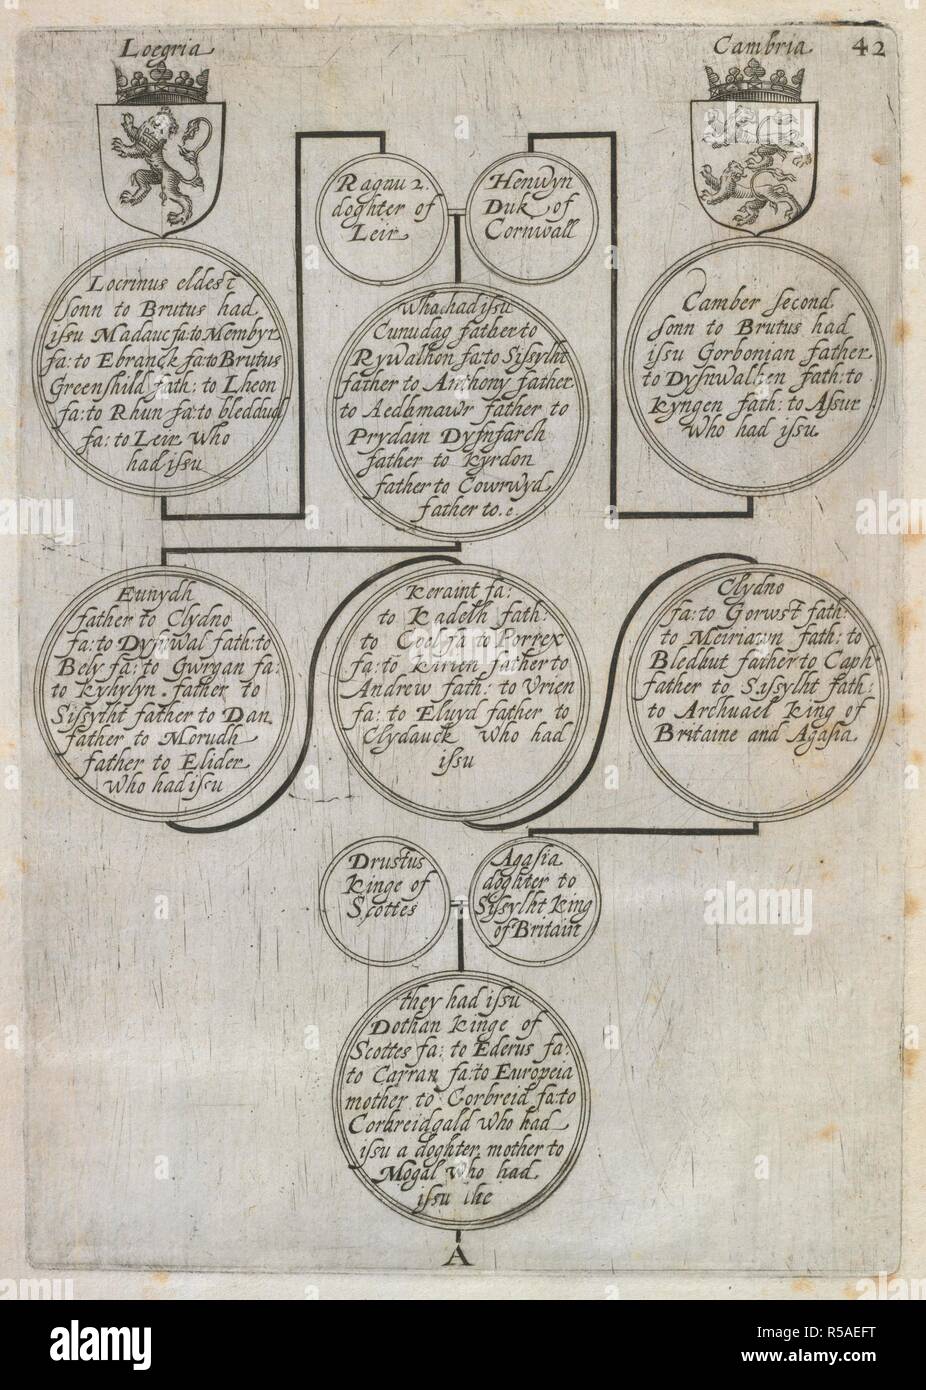 Loegria
Cambria
42
Locrinus eldest
sonn to Brutus had
issu Madauc fa: to Membyr
fa: to Ebranck fa: to Brutus
Greenshild fath: to Lheon
fa: to Rhun fa: to bleddud
fa: to Leir who
had issu
Ragau 2.
doghter of
Leir
Henwyn
Duk of
Cornwall
Camber second
sonn to Brutus had
issu Gorbonian father
to Dysnwalhen fath: to
Kyngen fath: to Assur
who had issu
who had issu
Cunudag father to
Rywalhon fa: to Sissylht
father to Anthony father
to Aedhmawr father to
Prydain Dysnfarch
father to Kyrdon
father to Cowrwyd
father to. e.
Eunydh
father to Clydno
fa: to Dysnwal fath: to
Bely fa: to Gwrgan fa:
to Kyhylyn. father to
Sissylht father to Dan
father to Morudh
father to Elider
who had issu
Keraint fa:
to Kadelh fath:
to Coel fa to Porrex
fa: to Kirien father to
Andrew fath: to Vrien
fa: to Eluyd father to
Clydauck who had
issu
Clydno
fa: to Gorwst fath:
to Meiriawn fath: to
Bledhut father to Caph
father to Sissylht fath:
to Archuael King of
Britaine and Agasia
Drustus
Kinge of
Scottes
Agasia
doghter to
Sissylht King
of Britain
they had issu
Dothan Kinge of
Scottes fa: to Ederus fa:
to Carran fa: to Europeia
mother to Corbreid fa: to
Corbreidgald who had
issu a doghter mother to
Mogal who had
issu the
A
alamy
Image ID: R5AEFT
www.alamy.com